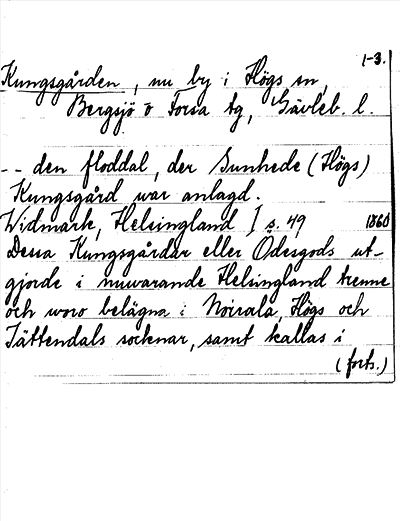 1-3.
Kungsgården, nu by i Högs sn,
Bergsjö o Forsa tg, Gävleb. l.
-- den floddal, der Sunhede (Högs)
Kungsgård war anlagd.
Widmark, Helsingland I s. 49 1860
Dessa Kungsgårdar eller Ödesgods ut-
gjorde i nuwarande Helsingland trenne
och woro belägna i Norrala, Högs och
Jättendals socknar, samt kallas i
(forts.)